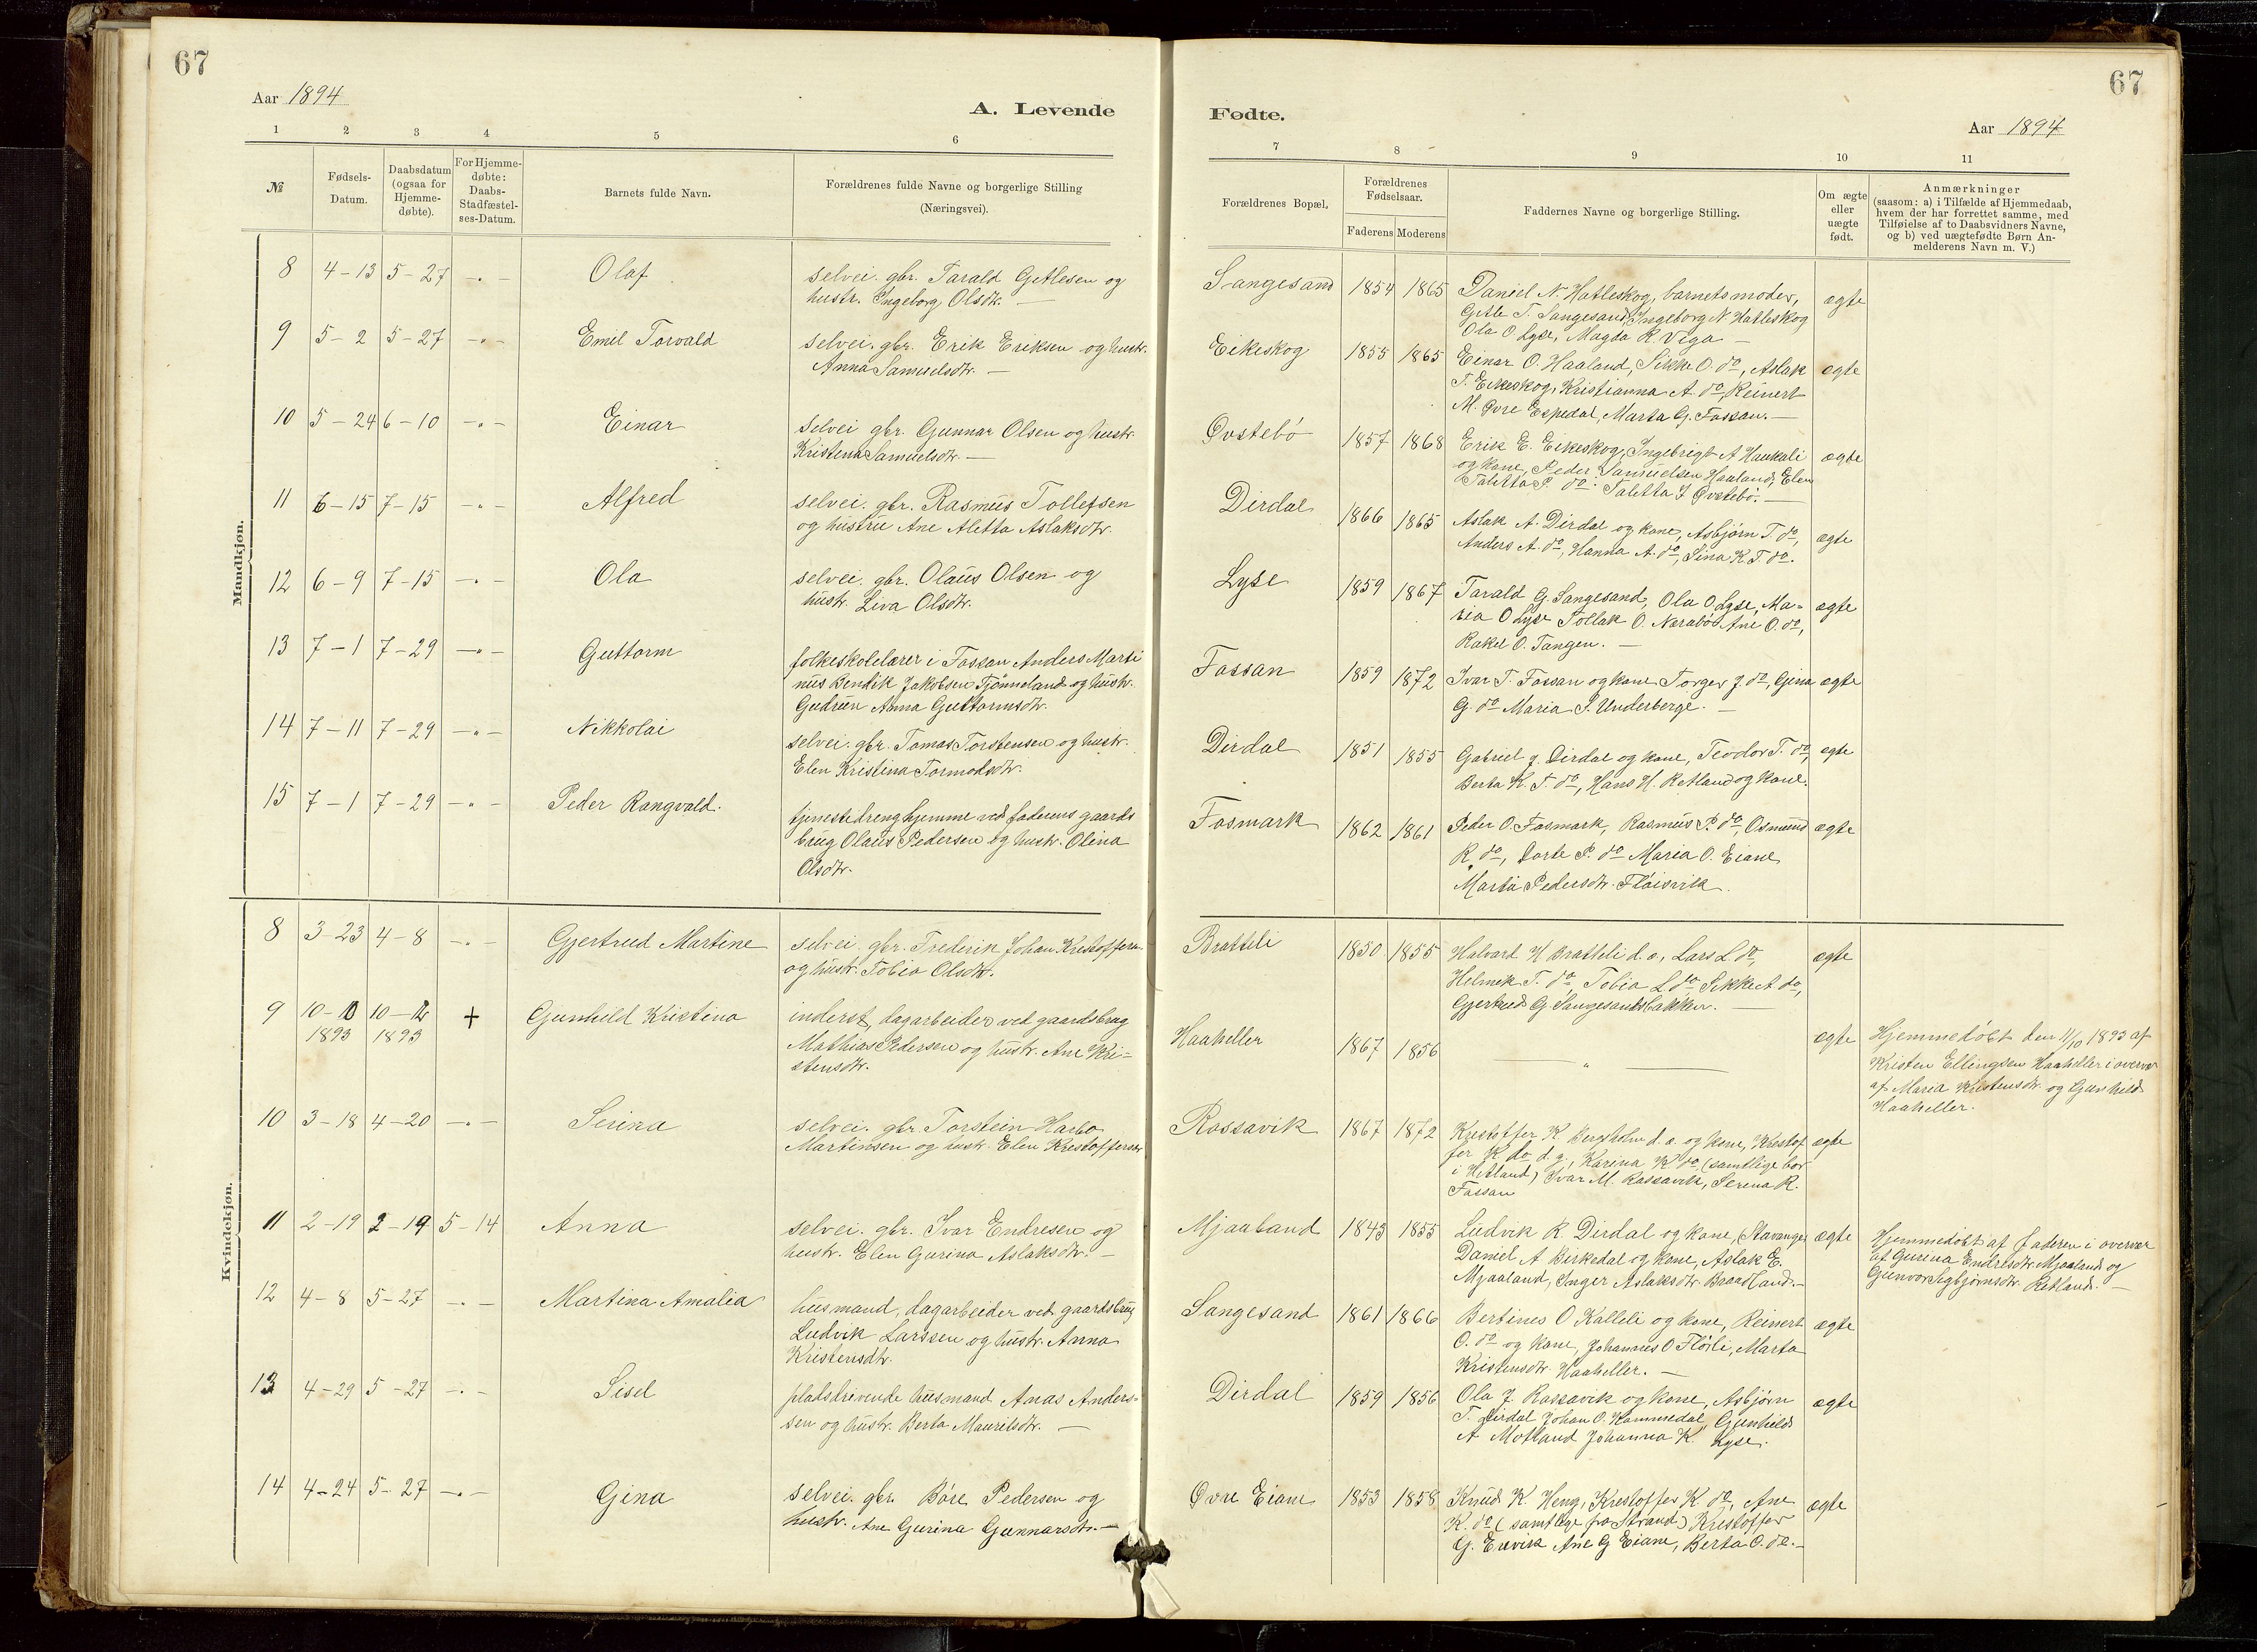 67
Aar 1894
A. Levende
1 2 3 4 5 6
№
Fødsels-
Datum.
Daabsdatum
(ogsaa for
Hjemme-
døbte).
For Hjemme-
døbte:
Daabs-
Stadfæstel-
ses-Datum.
Barnets fulde Navn.
Forældrenes fulde Navne og borgerlige Stilling
(Næringsvei).
Mandkjøn.
8 4-13 5-27 -„- Olaf
selvei. gbr. Tarald Gitlesen og
hustr. Ingeborg Olsdtr. —
9 5-2 5-27 -„- Emil Torvald
selvei. gbr. Erik Eriksen og hustr.
Anna Samuelsdtr. —
10 5-24 6-10 -„- Einar
selvei gbr. Gunnar Olsen og hustr.
Kristena Samuelsdtr. —
11 6-15 7-15 -„- Alfred
selvei. gbr. Rasmus Tollefsen
og hustru Ane Aletta Aslaksdtr.
12 6-9 7-15 -„- Ola
selvei. gbr. Olaus Olsen og
hustr. Liva Olsdtr.
13 7-1 7-29 -„- Guttorm
folkeskolelærer i Fossan Anders Marti
nus Bendik Jakobsen Tjønneland og hustr.
Gudrun Anna Guttormsdtr.
14 7-11 7-29 -„- Nikkolai
selvei. gbr. Tomas Torstensen og hustr.
Elen Kristina Tormodsdtr.
15 7-1 7-29 -„- Peder Rangvald.
tjenestedreng hjemme ved faderens gaards
brug Olaus Pedersen og hustr. Olina
Olsdtr.
Kvindekjøn.
8 3-23 4-8 -„- Gjertrud Martine
selvei. gbr. Frederik Johan Kristoffersen
og hustr. Tobia Olsdtr.
9 10-10 10-12 + Gunhild Kristina
1893 1893
inderst, dagarbeider ved gaardsbrug
Mathias Pedersen og hustr. Ane Kri-
stensdtr.
10 3-18 4-20 -„- Serina
selvei. gbr. Torstein Harbo
Martinsen og hustr. Elen Kristoffersdtr
11 2-19 2-19 5-14 Anna
selvei. gbr. Ivar Endresen og
hustr. Elen Gurina Aslaksdtr. —
12 4-8 5-27 -„- Martina Amalia
husmand, dagarbeider ved gaardsbrug
Ludvik Larssen og hustr. Anna
Kristensdtr.
13 4-29 5-27 -„- Sisel
pladsbrivende husmand Anas Anders-
sen og hustr. Berta Mauritsdtr. —
14 4-24 5-27 -„- Gina
selvei. gbr. Båre Pedersen og
hustr. Ane Gurina Gunnarsdtr. —
67
Fødte.
Aar 1894
7 8 9 10 11
Forældrenes Bopæl.
Forældrenes
Fødselsaar.
Faderens Moderens
Faddernes Navne og borgerlige Stilling.
Om ægte
eller
uægte
født.
Anmærkninger
(saasom: a) i Tilfælde af Hjemmedaab,
hvem der har forrettet samme, med
Tilføielse af to Daabsvidners Navne,
og b) ved uægtefødte Børn An-
melderens Navn m. V.)
Sangesand 1854 1865 Daniel N. Hatleskog, barnets moder, ægte
Gitle T. Sangesand, Ingeborg N Hatleskog
Ola O Lyse, Magda R Vega —
Eikeskog 1855 1865 Einar O. Haaland, Sikke O. do, Aslak ægte
T. Eikeskog, Kristianna A. do, Reinert
M. Øvre Espedal, Marta G. Fossan. —
Øvstebø 1857 1868 Erik E. Eikeskog, Ingebrigt A Haukali ægte
og kone, Peder Samuelsen Haaland, Elen
Taletta P. do: Taletta J Øvstebø. —
Dirdal 1866 1865 Aslak A. Dirdal og kone, Asbjørn T. do, ægte
Anders A. do, Hanna A. do, Sina K. T. do.
Lyse 1859 1867 Tarald G. Sangesand, Ola O Lyse, Ma- ægte
ria O Lyse Tollak O. Nærabø Ane O. do,
Rakel O. Tangen. —
Fossan 1859 1872 Ivar T. Fossan og kone Torger J. do, Gina ægte
G. do Maria S. Underberge. —
Dirdal 1851 1855 Gabriel J. Dirdal og kone, Teodor T. do, ægte
Berta K. T. do, Hans H. Retland og kone.
Fosmark 1862 1861 Peder O. Fosmark, Rasmus P. do, Osmund ægte
R. do, Dorte P. do Maria O. Eiane
Marta Pedersdtr. Fløisvik.
Bratteli 1850 1855 Halvard H Bratteli d. æ., Lars L do, ægte
Helmik T. do, Tobia L do Sikke A do,
Gjertrud G Sangesandsbakken. —
Haaheller 1867 1856 — „ — ægte
Hjemmedøbt den 11/10 1893 af
Kristen Ellingsen Haaheller i overvær
af Maria Kristensdtr. og Gunhild
Haaheller.
Rossavik 1867 1872 Kristoffer K Bergsholm d. æ. og kone, Kristof ægte
fer K do d. y., Karina K do (samtlige bor
i Hetland) Ivar M. Rossavik, Serena R.
Fossan
Mjaaland 1843 1855 Ludvik R. Dirdal og kone, (Stavanger ægte
Daniel A Birkedal og kone, Aslak E.
Mjaaland, Inger Aslaksdtr. Brandland. —
Hjemmedøbt af faderen i overvær
af Gurina Endresdtr. Mjaaland og
Gunvor Sigbjørnsdtr. Retland. —
Sangesand 1861 1866 Bertines O Kalleli og kone, Reinert ægte
O. do og kone, Johannes O Flørli, Marta
Kristensdtr. Haaheller. —
Dirdal 1859 1856 Ola J. Rossavik og kone, Asbjørn ægte
T. Dirdal Johan O. Kommedal, Gunhild
A Motland Johanna K. Lyse.
Øvre Eiane 1853 1858 Knud K. Heng, Kristoffer K do, Ane ægte
K. do (samtlige fra Strand) Kristoffer
G. Erevik Ane G Eiane, Berta O. do. —